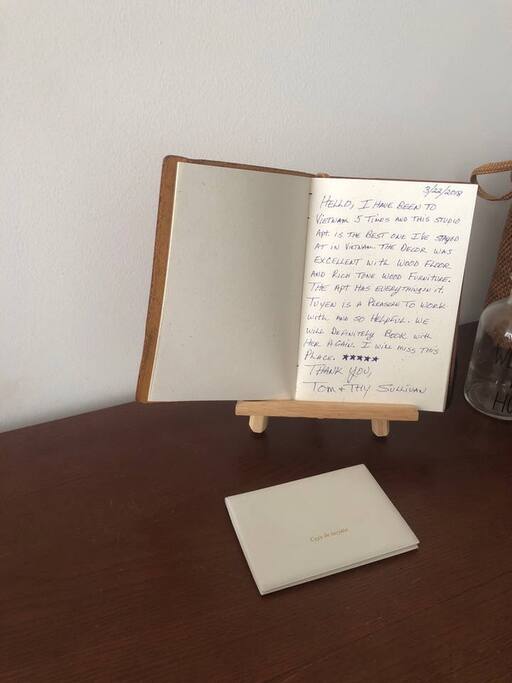 3/22/2018
HELLO, I HAVE BEEN TO
VIETNAM 5 TIMES AND THIS STUDIO
APT. IS THE BEST ONE I'VE STAYED
AT IN VIETNAM. THE DECOR WAS
EXCELLENT WITH WOOD FLOOR
AND RICH TONE WOOD FURNITURE.
THE APT HAS EVERYTHING IN IT.
TUYEN IS A PLEASURE TO WORK
WITH AND SO HELPFUL. WE
WILL DEFINITELY BOOK WITH
HER AGAIN. I WILL MISS THIS
PLACE. ★★★★★
THANK YOU,
TOM + THY SULLIVAN